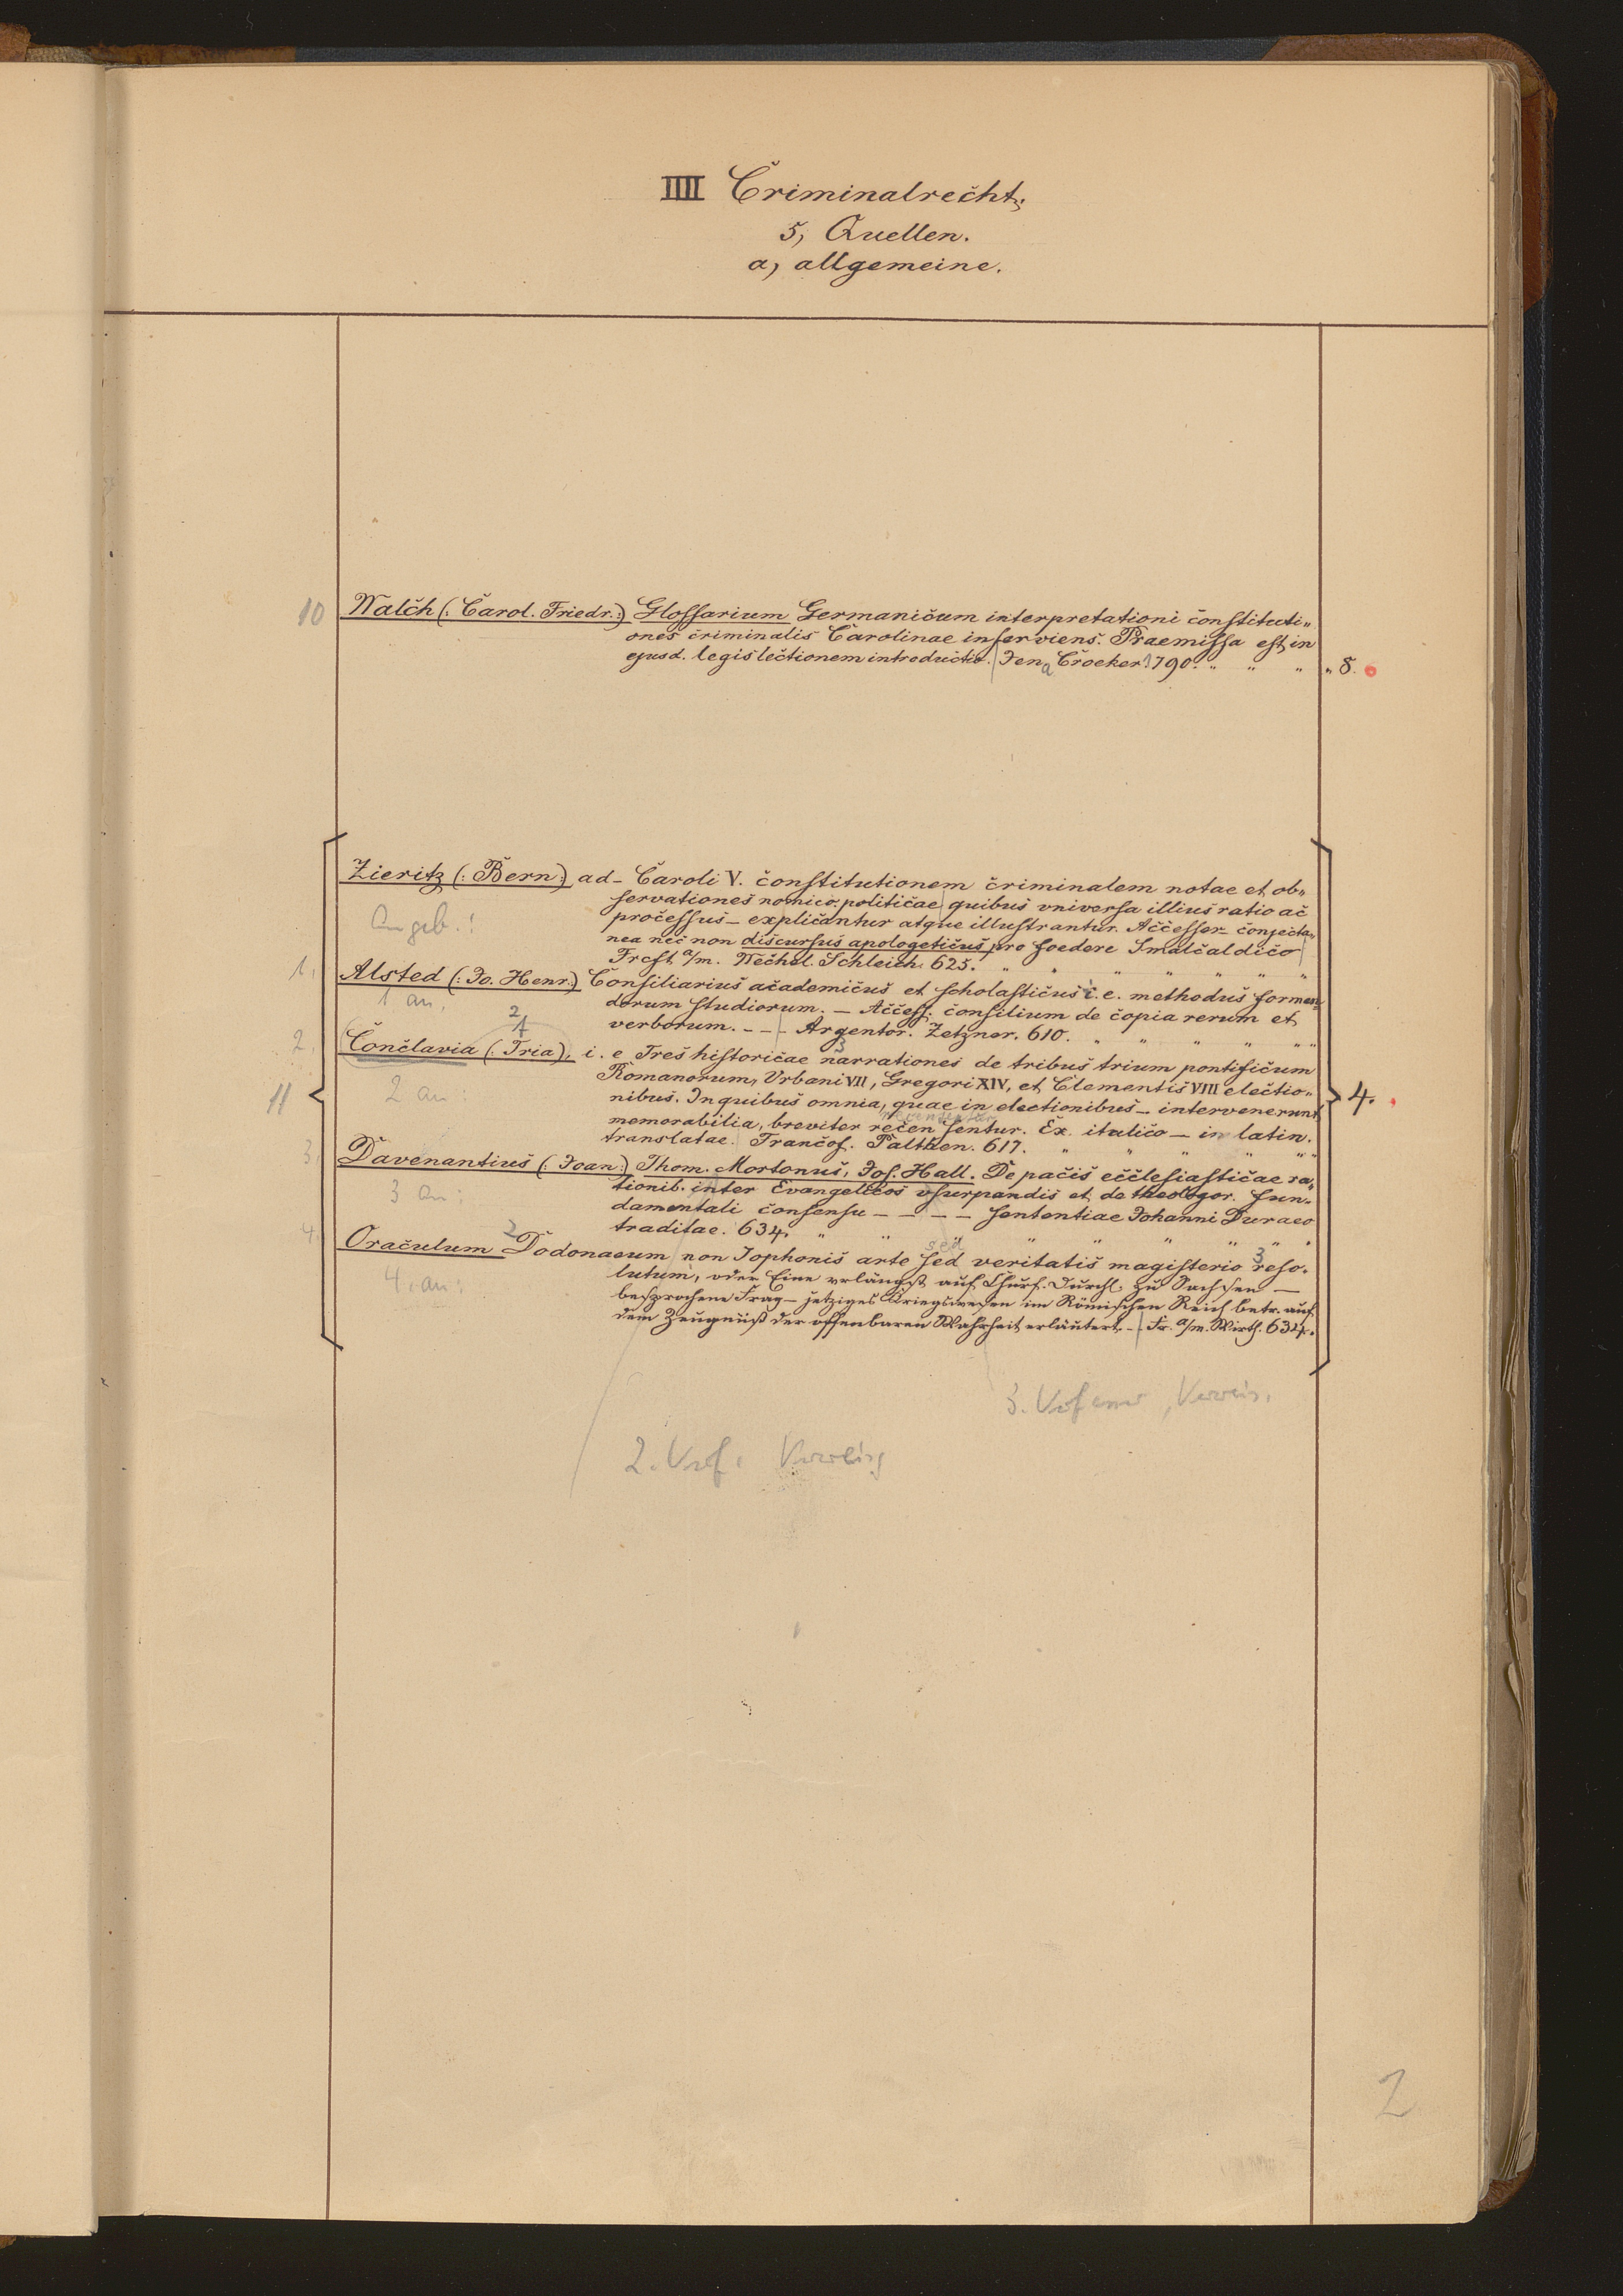 IIII Criminalrecht.
5, Quellen.
a, allgemeine.
10 Walch (: Carol. Friedr.:) Glossarium Germanicum interpretationi constituti„
ones criminalis Carolinae inserviens. Praemissa est in
ejusd. legis lectionem introductio. Jena Croeker. 1790. „ „ „ „ 8.
Zieritz (: Bern:) ad - Caroli V. constitutionem criminalem notae et ob„
servationes nomico-politicae quibus vniversa illius ratio ac
Angeb.! processus - explicantur atque illustrantur. Accesser - conjecta„
nea nec non discursus apologeticus pro foedere Smalcaldico
Frcft. a/m. Wechel. Schleich. 625. „ „ „ „ „ „ „
1. Alsted (: Jo. Henr.:) Consiliarius academicus et scholasticus i. e. methodus forman„
1 an. dorum studiorum. - Access. consilium de copia rerum et
verborum. - - - Argentor. Zetzner. 610. „ „ „ „ „ „
2. Conclavia (: Tria), i. e Tres historicae narrationes de tribus trium pontificum
Romanorum, Urbani VII, Gregori XIV, et Clementis VIII electio„
11 2 an: nibus. In quibus omnia, quae in electionibus - intervenerunt 4.
memorabilia, breviter recensentur. Ex. italico - in latin.
translatae. Francof. Palthen. 617. „ „ „ „ „ „
3. Davenantius (: Joan:) Thom. Mortonus, Jos. Hall. De pacis ecclesiasticae ra„
3 an: tionib. inter Evangelicos vsurpandis et de theologor. fun„
damentali consensu - - - - sententiae Johanni Duraeo
traditae. 634. „ „ „ „ „ „ „ „ „
4. Oraculum Dodonaeum non Jophonis arte sed veritatis magisterio reso„
4. an: lutum, oder Eine verlängst auf Churf. Durchl. zu Sachsen -
besprochene Frag - jetziges Kriegswesen im Römischen Reich betr. auf
dem Zeugnüß der offenbaren Wahrheit erläutert. - Fr. a/m. Wirth. 634.
3. Verweis.
2. Verf. Verweis
2